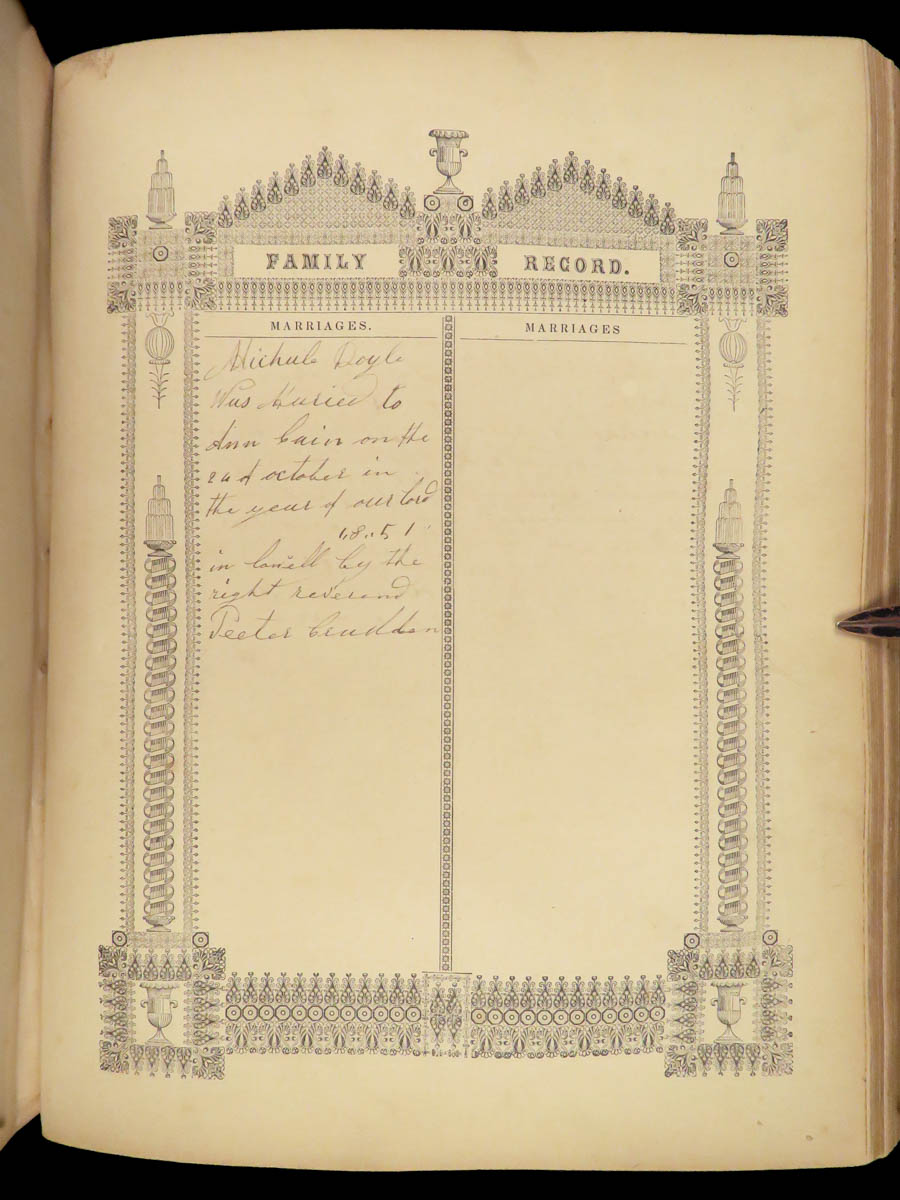 FAMILY RECORD.
MARRIAGES.
Michule Doyle
Was Maried to
Ann Cain on the
22 of october in
the year of our lord
1851
in lowell by the
right reverend
Peeter Crudden
MARRIAGES